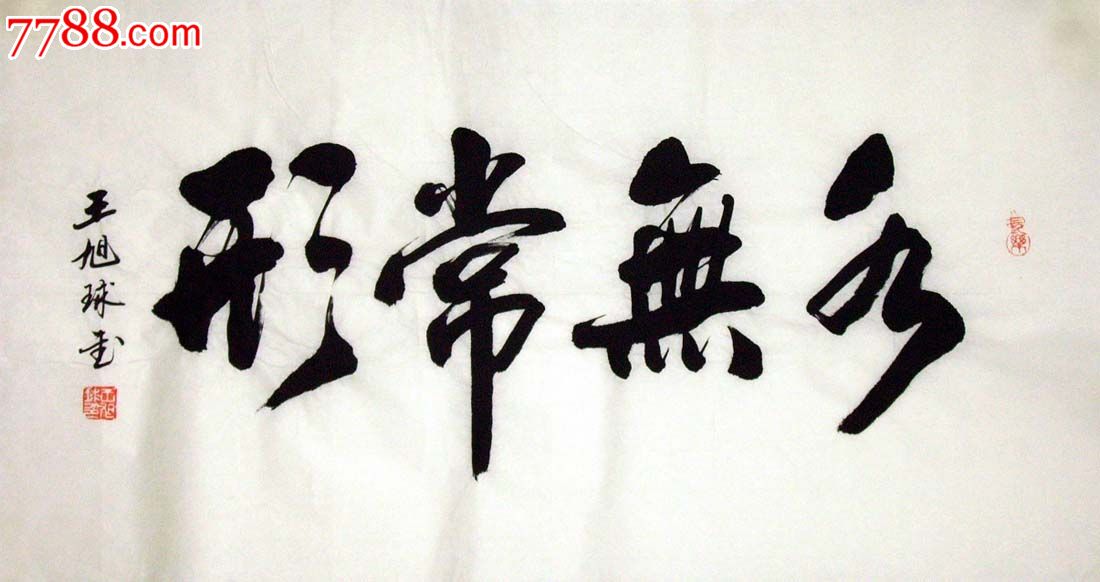 7788.com
水無常形
王旭球书